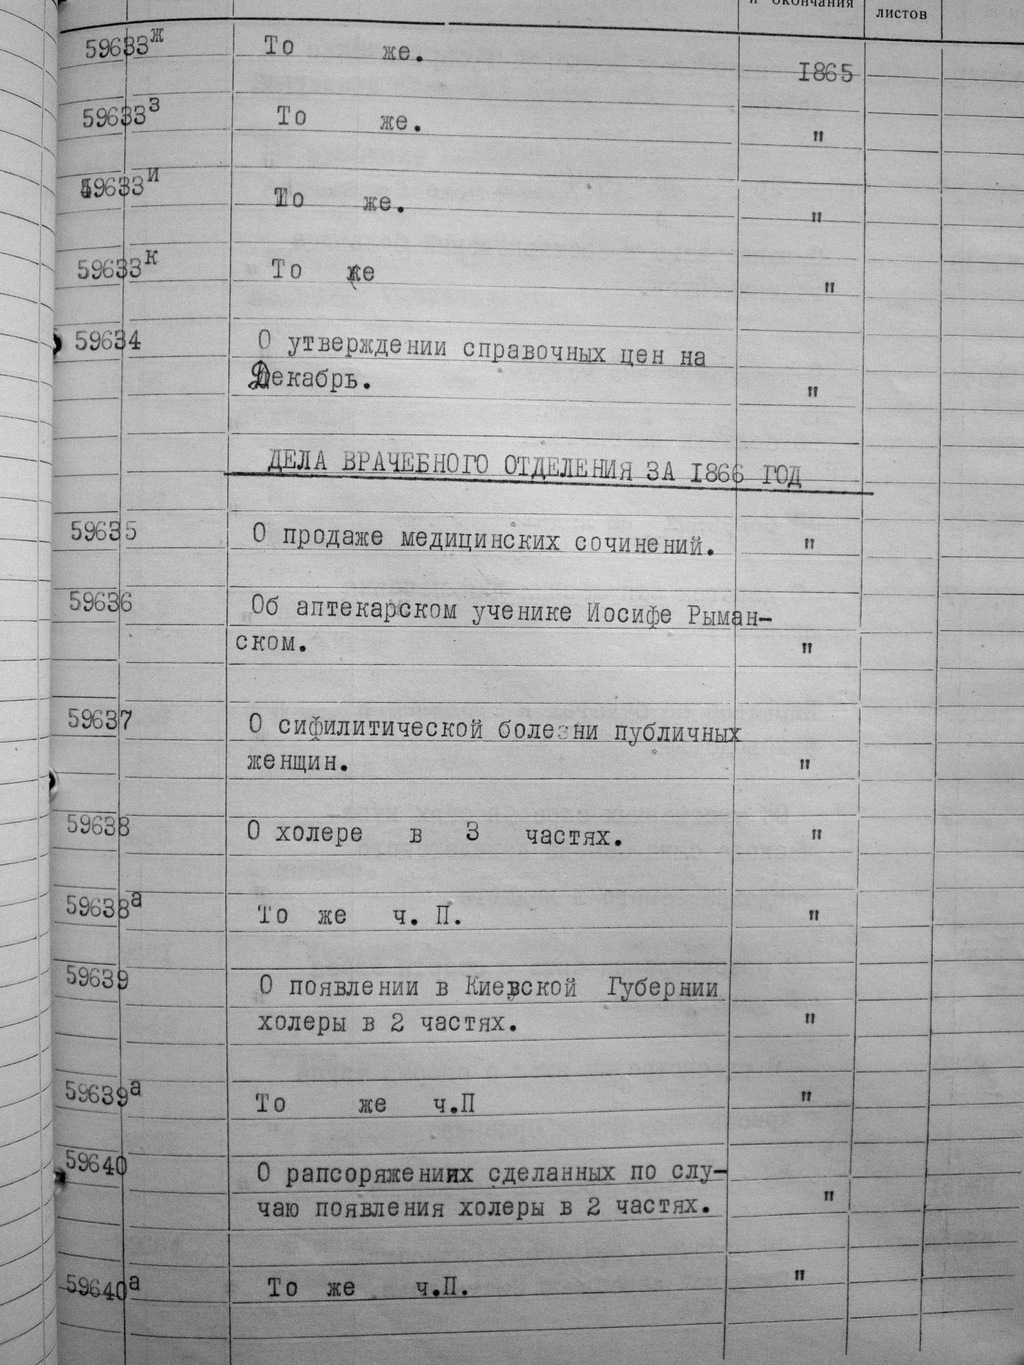 и окончания
листов
59633ж То же. 1865
59633з То же. "
59633и То же. "
59633к То же "
59634 О утверждении справочных цен на
Декабрь. "
ДЕЛА ВРАЧЕБНОГО ОТДЕЛЕНИЯ ЗА 1866 ГОД
59635 О продаже медицинских сочинений. "
59636 Об аптекарском ученике Иосифе Рыман-
ском. "
59637 О сифилитической болезни публичных
женщин. "
59638 О холере в 3 частях. "
59638а То же ч. П. "
59639 О появлении в Киевской Губернии
холеры в 2 частях. "
59639а То же ч.П "
59640 О рапсоряжениях сделанных по слу-
чаю появления холеры в 2 частях. "
59640а То же ч.П. "